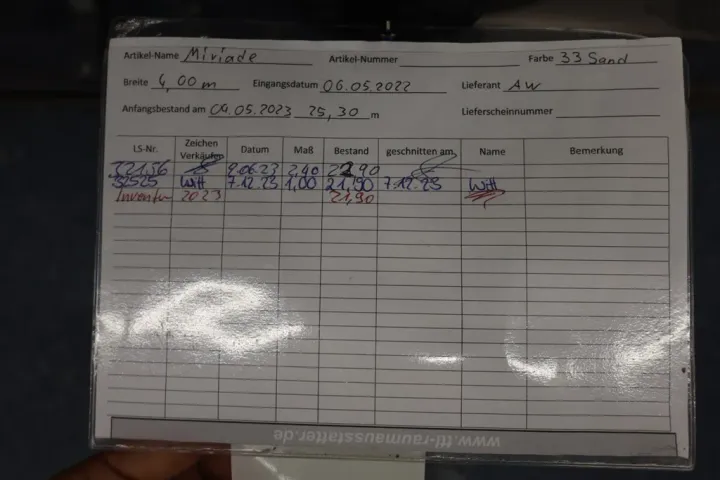 Artikel-Name Miriade Artikel-Nummer Farbe 33 Sand
Breite 4,00 m Eingangsdatum 06.05.2022 Lieferant AW
Anfangsbestand am 09.05.2023 25,30 m Lieferscheinnummer
LS-Nr. Zeichen Verkäufer Datum Maß Bestand geschnitten am Name Bemerkung
9.06.23 2,40 22,90
32525 Witt 7.12.23 1,00 21,90 7.12.23 Witt
Inventur 2023 21,90
www.ttl-raumausstatter.de